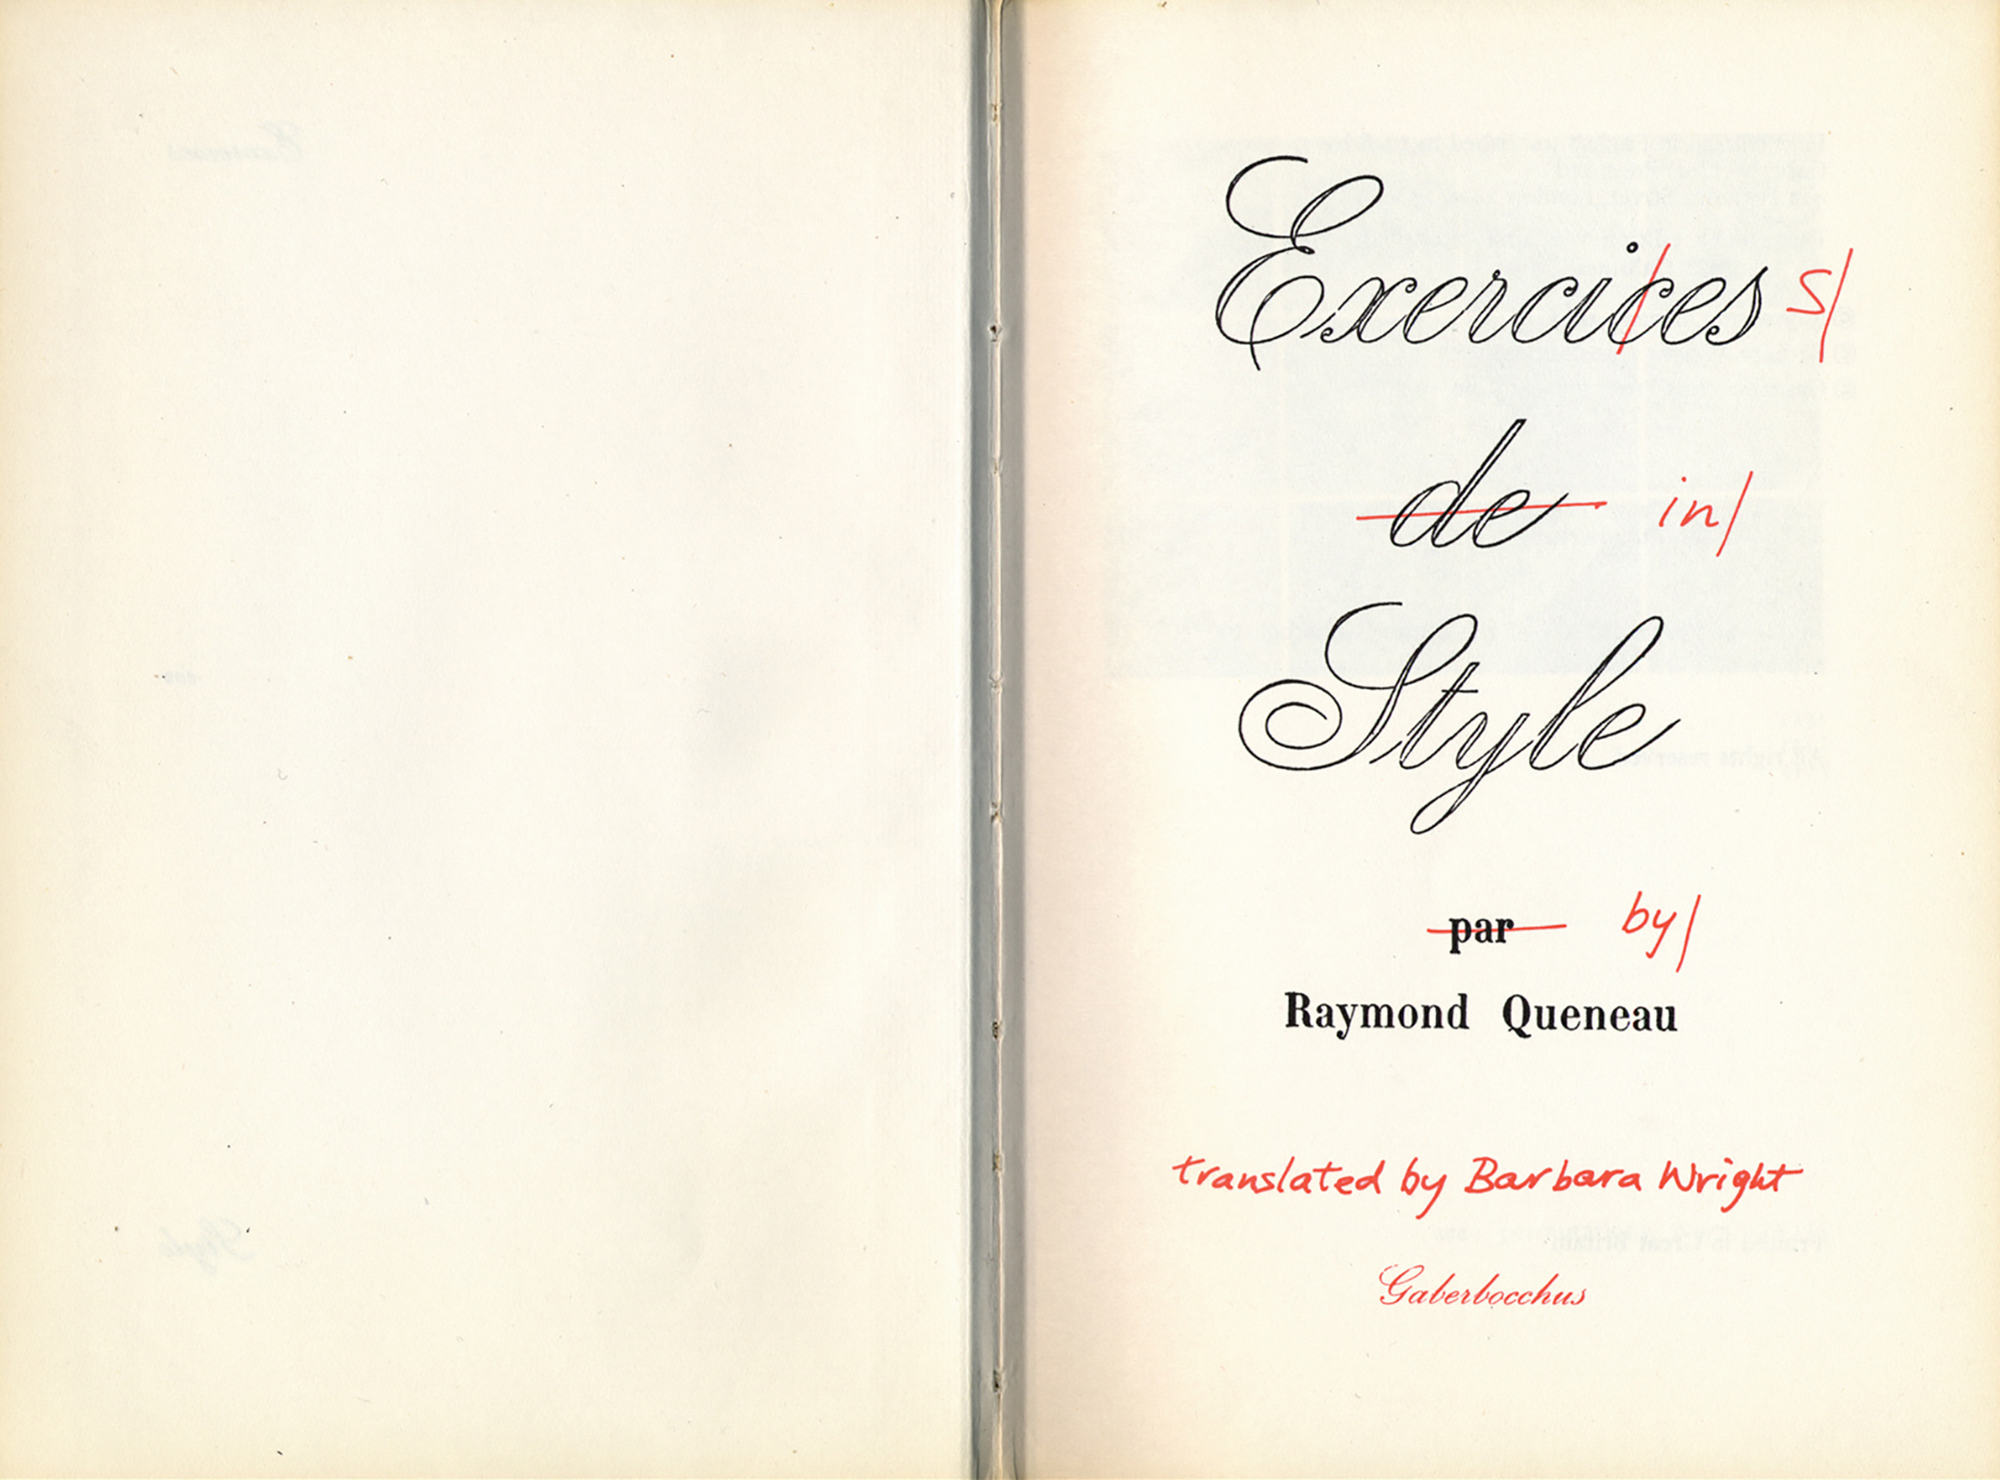 Exercices s/
de in/
Style
par by/
Raymond Queneau
translated by Barbara Wright
Gaberbocchus